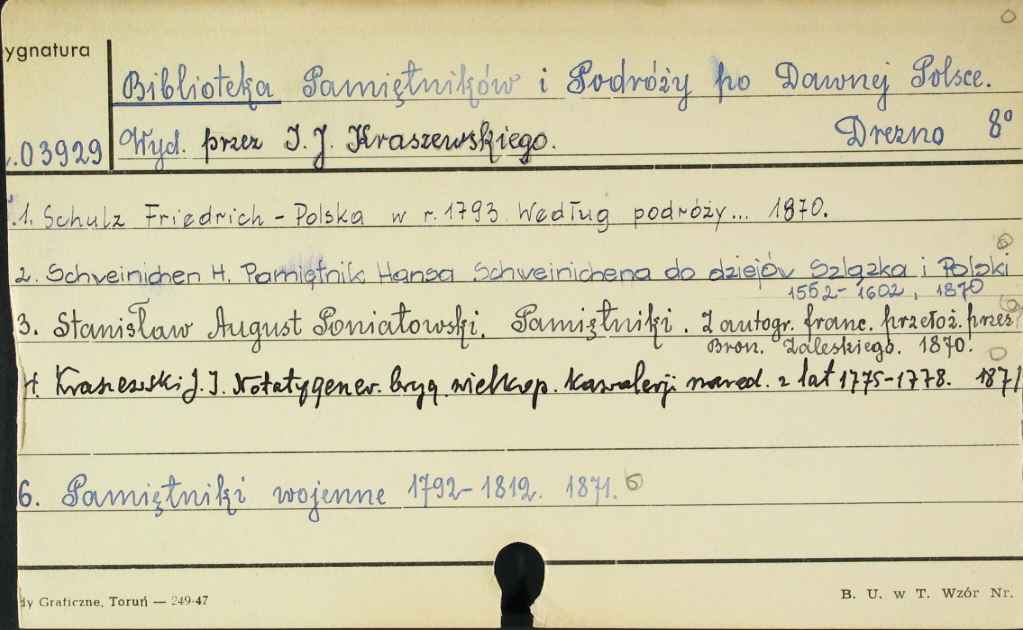 ygnatura
Biblioteka Pamiętników i Podróży po Dawnej Polsce.
03929 Wyd. przez I. J. Kraszewskiego. Drezno 8°
1. Schulz Friedrich - Polska w r. 1793 Według podróży... 1870.
2. Schveinichen H. Pamiętnik Hansa Schveinichena do dziejów Szlązka i Polski
1552-1602, 1870
3. Stanisław August Poniatowski. Pamiętniki. Z autogr. franc. przełoż. przez
Bron. Zaleskiego. 1870.
4. Kraszewski J. I. Notaty gener. bryg. wielkop. kawalerji narod. z lat 1775-1778. 1871
6. Pamiętniki wojenne 1792-1812. 1871.
dy Graficzne, Toruń — 249-47
B. U. w T. Wzór Nr.